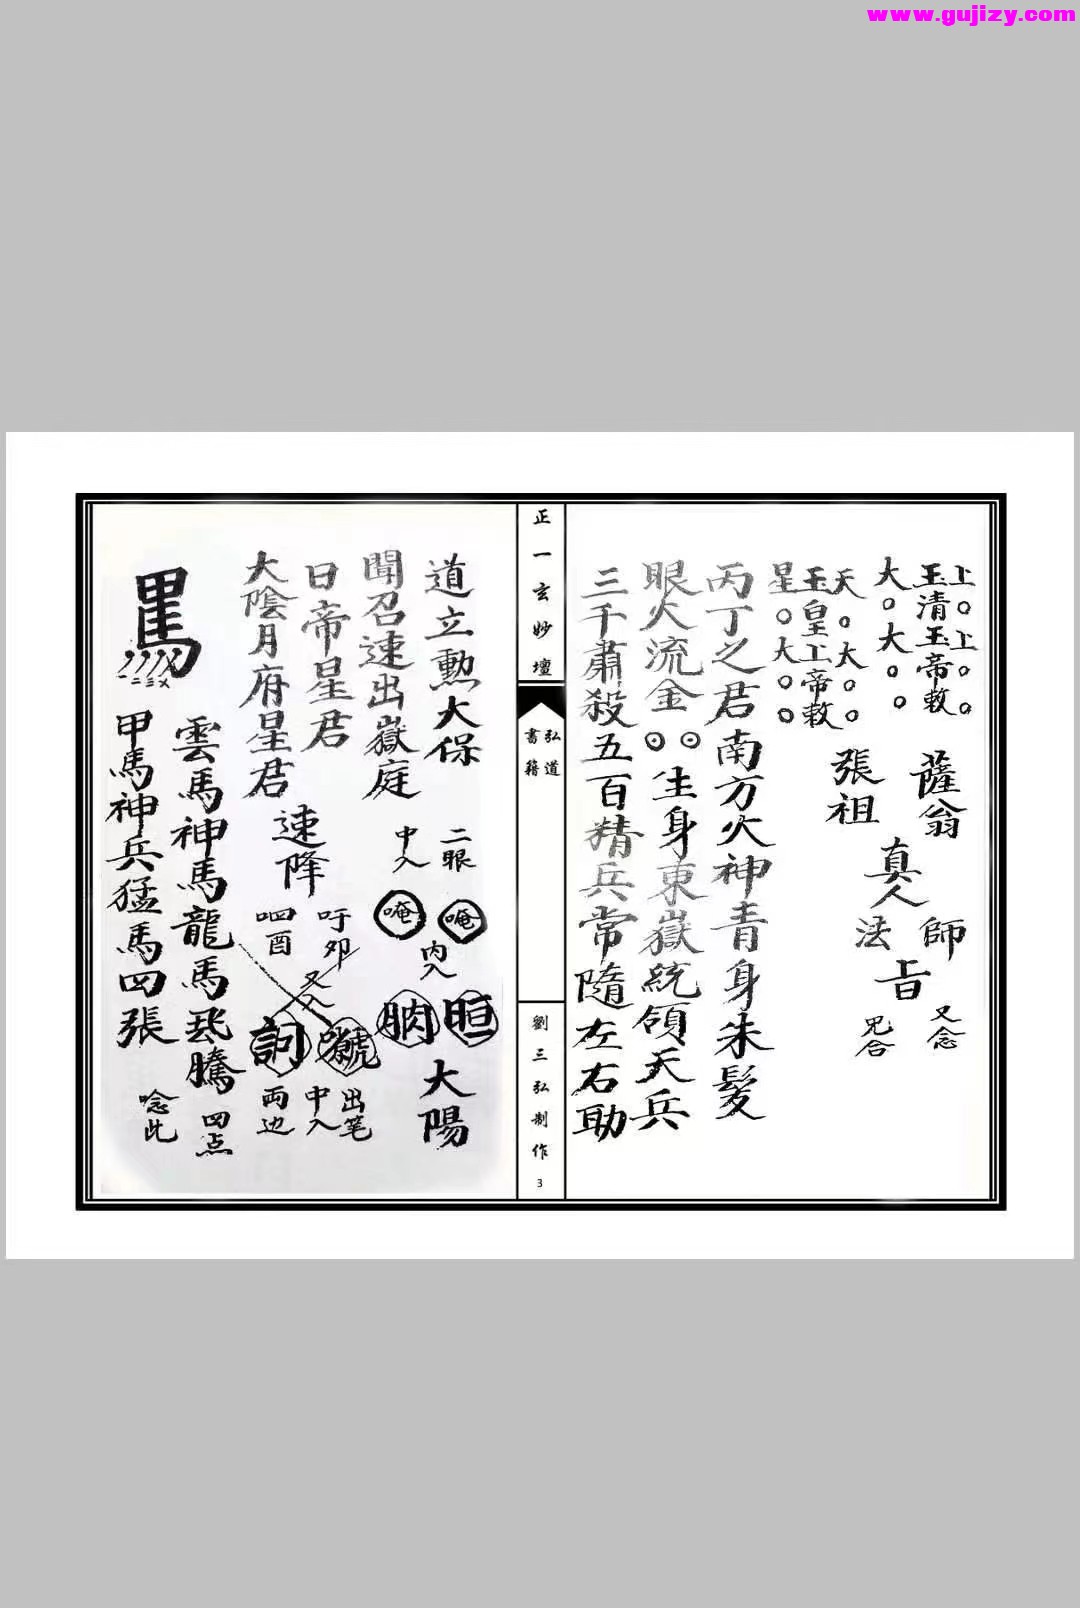 www.gujizy.com
上。上。。
玉清玉帝敕
大。大。。
薩翁
真人
師
法
旨
又念
咒合
天。大。。
玉皇上帝敕
星。大。。
張祖
丙丁之君南方火神青身朱髮
眼火流金
生身東嶽統領天兵
三千肅殺五百精兵常隨左右助
正一玄妙壇
弘道
書籍
劉三弘制作
3
道立勳大保
二眼
唵
晅
大陽
聞召速出嶽庭
中入
唵
内入
朒
日帝星君
大陰月府星君
速降
吁卯
呬酉
又入
訶
出笔
中入
両边
雲馬神馬龍馬飛騰
四点
甲馬神兵猛馬四張
唸此